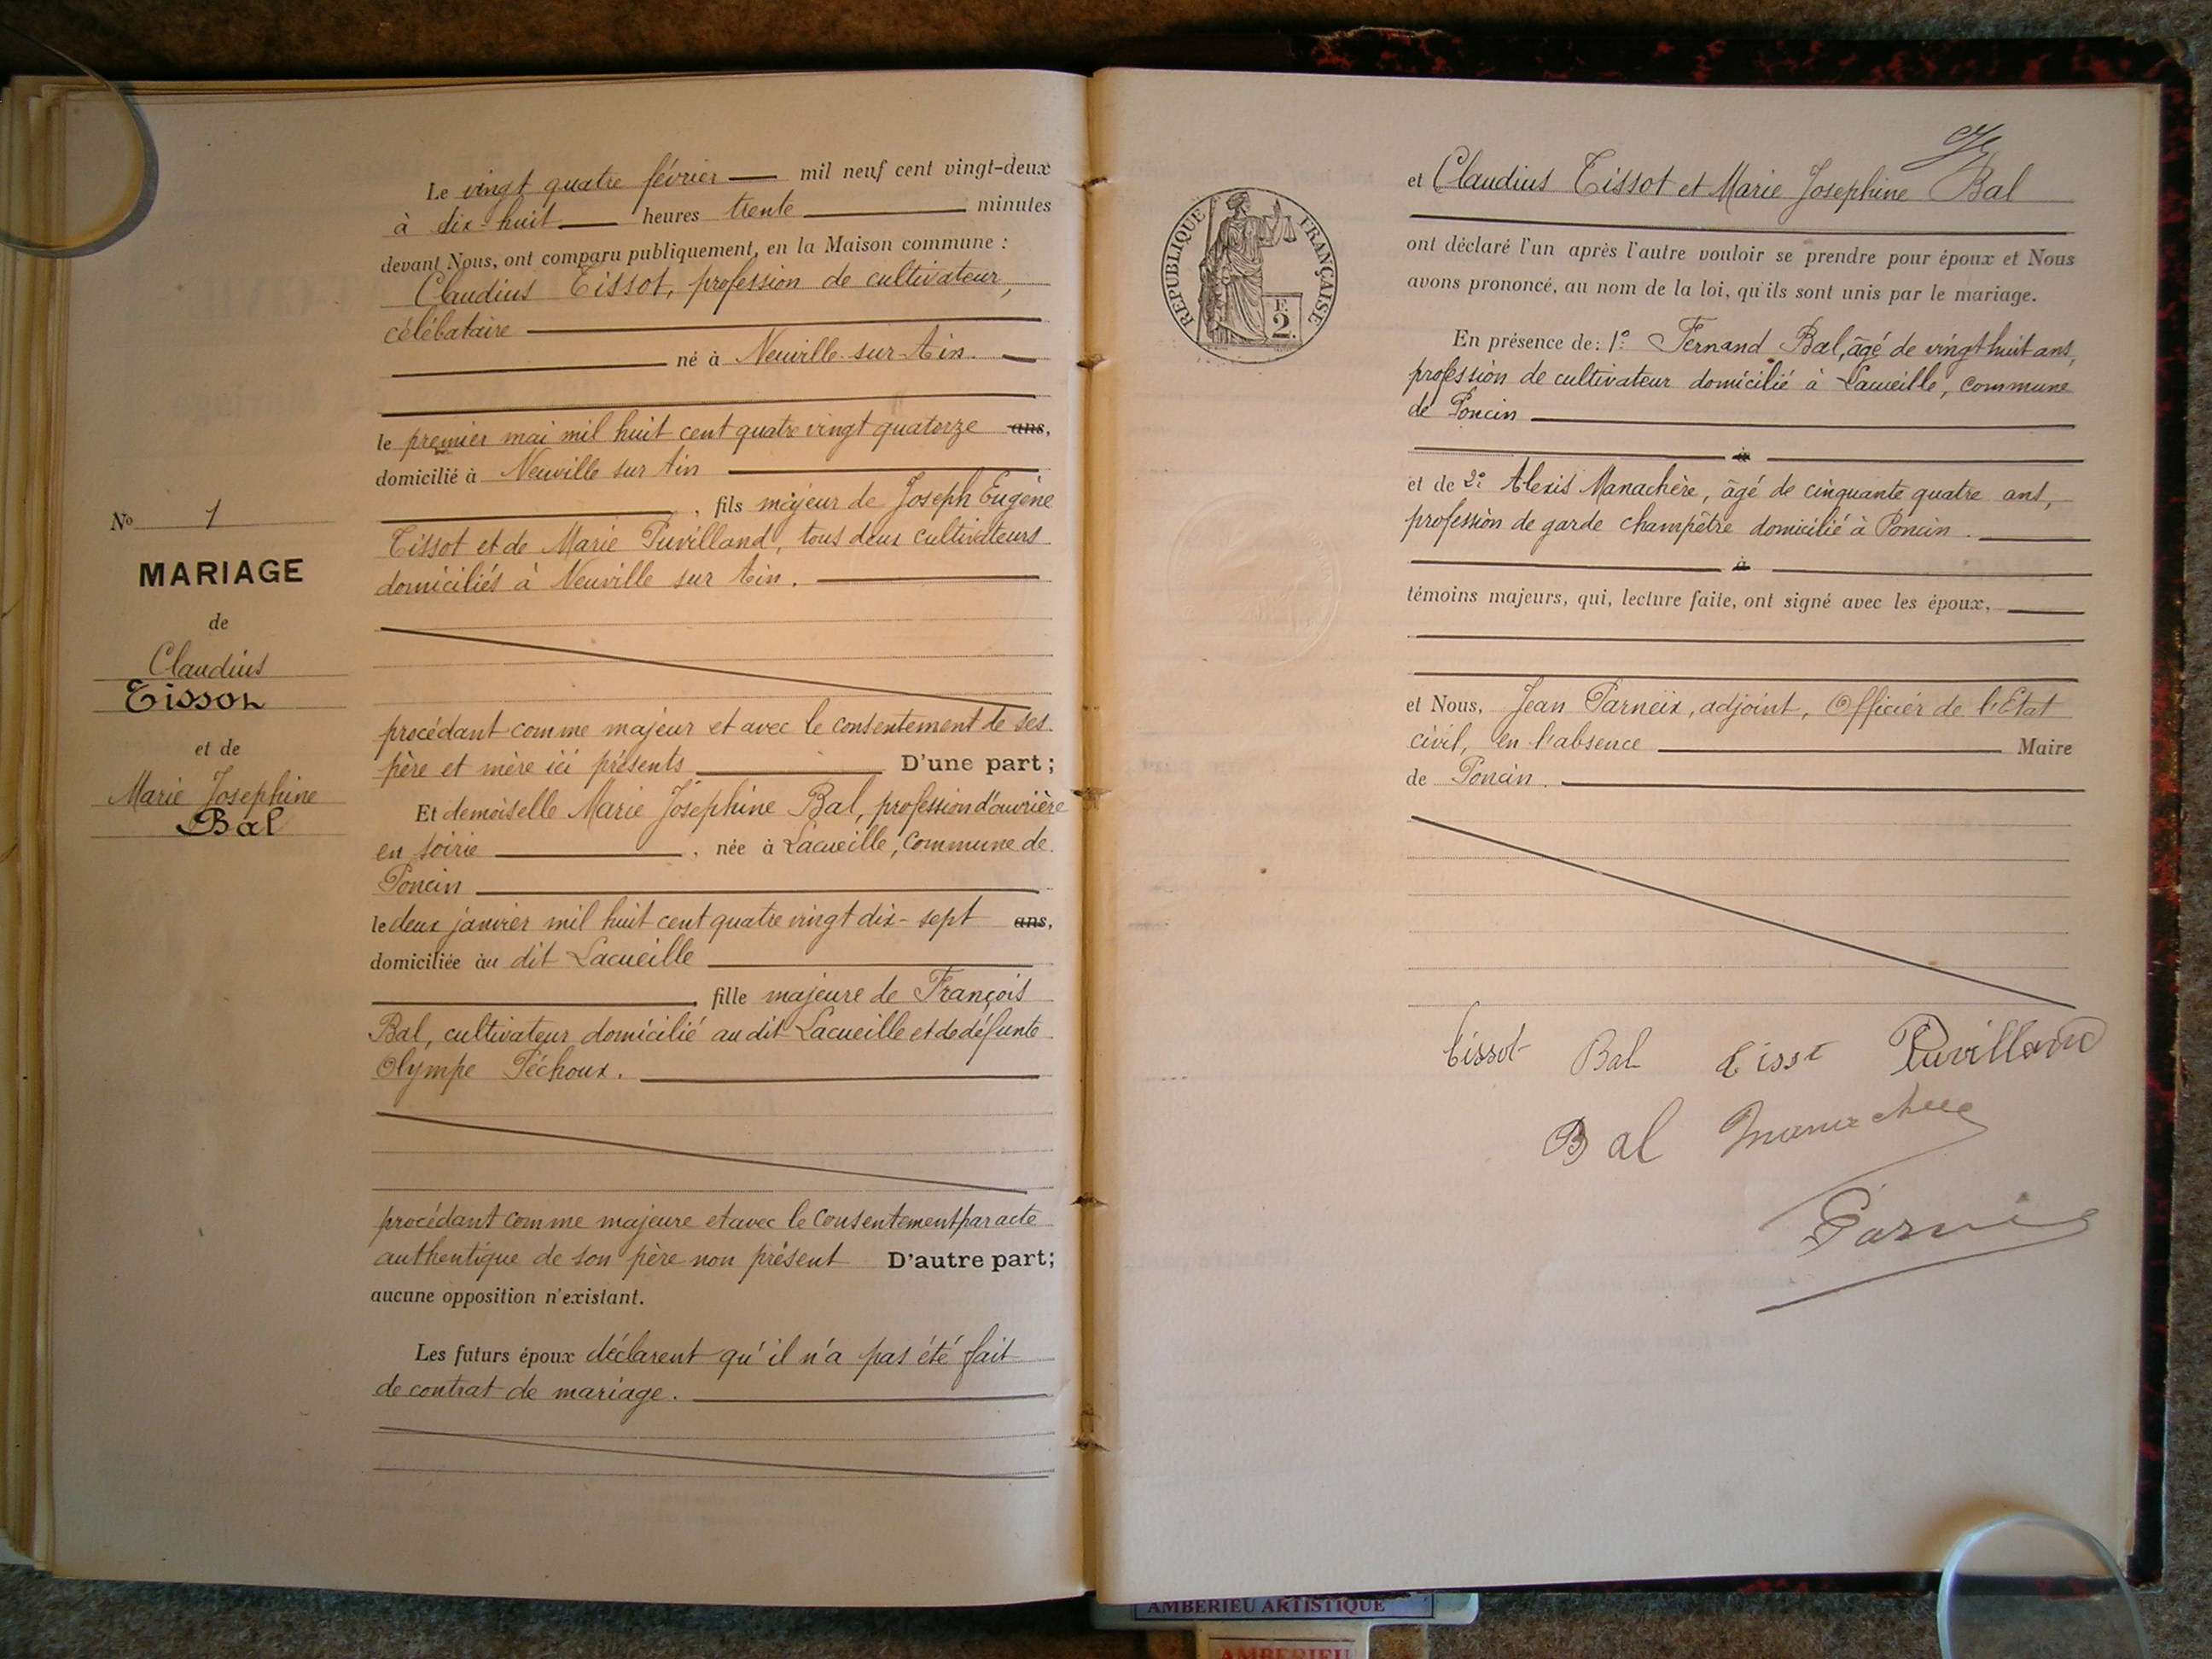 Le vingt quatre février mil neuf cent vingt-deux
à dix-huit heures trente minutes
devant Nous, ont comparu publiquement, en la Maison commune :
Claudius Tissot, profession de cultivateur,
célébataire
né à Neuville-sur-Ain.
le premier mai mil huit cent quatre vingt quatorze ans,
domicilié à Neuville sur Ain
, fils majeur de Joseph Eugène
Tissot et de Marie Puvilland, tous deux cultivateurs
domiciliés à Neuville sur Ain.
procédant comme majeur et avec le consentement de ses
père et mère ici présents D'une part ;
Et demoiselle Marie Josephine Bal, profession d'ouvrière
en soirie , née à Lacueille, commune de
Poncin
le deux janvier mil huit cent quatre vingt dix-sept ans,
domiciliée àu dit Lacueille
, fille majeure de François
Bal, cultivateur domicilié au dit Lacueille et de défunte
Olympe Péchoux.
procédant comme majeure et avec le consentement par acte
authentique de son père non présent D'autre part;
aucune opposition n'existant.
Les futurs époux déclarent qu'il n'a pas été fait
de contrat de mariage.
No 1
MARIAGE
de
Claudius
Tissot
et de
Marie Josephine
Bal
RÉPUBLIQUE FRANÇAISE
F.
2.
et Claudius Tissot et Marie Josephine Bal
ont déclaré l'un après l'autre vouloir se prendre pour époux et Nous
avons prononcé, au nom de la loi, qu'ils sont unis par le mariage.
En présence de : 1° Fernand Bal, âgé de vingt huit ans,
profession de cultivateur domicilié à Lacueille, commune
de Poncin
à
et de 2° Alexis Manachère, âgé de cinquante quatre ans,
profession de garde champêtre domicilié à Poncin.
à
témoins majeurs, qui, lecture faite, ont signé avec les époux,
et Nous, Jean Parneix, adjoint, Officier de l'Etat
civil, en l'absence Maire
de Poncin.
Tissot Bal Tissot Puvilland
Bal Manachere
Parneix
AMBERIEU ARTISTIQUE
AMBERIEU